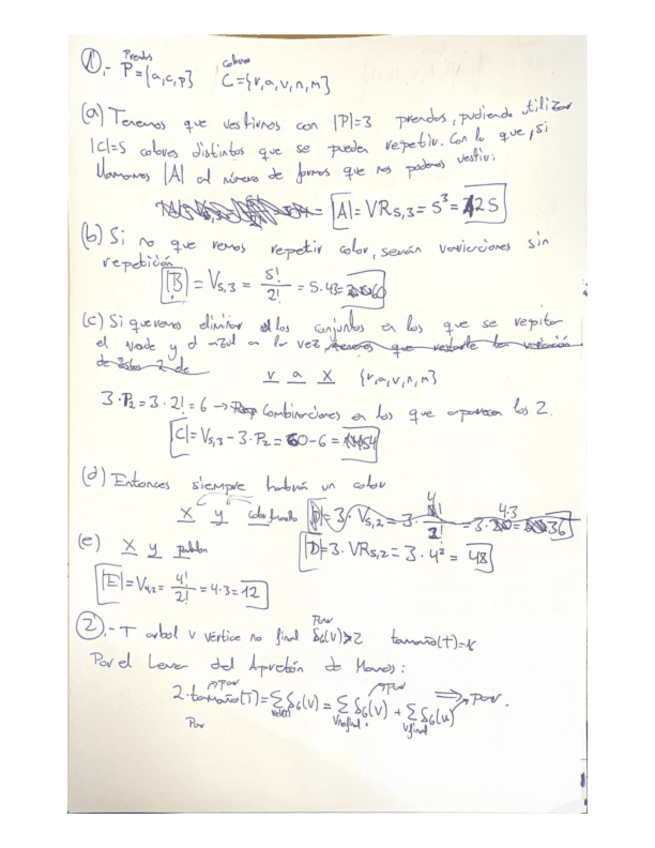 Prendas Colores
①.- P={a,c,p} C={r,a,v,n,m}
(a) Tenemos que vestirnos con |P|=3 prendas, pudiendo utilizar
|C|=5 colores distintos que se pueden repetir. Con lo que, si
llamamos |A| al número de formas que nos podemos vestir:
|A|=VR5,3=5³=125
(b) Si no queremos repetir color, serán variaciones sin
repetición
|B|=V5,3=5!/2!=5·4·3=60
(c) Si queremos eliminar los conjuntos en los que se repita
el verde y el azul a la vez
v a x {r,a,v,n,m}
3·P2=3·2!=6 → Combinaciones en los que aparecen los 2.
|C|=V5,3-3·P2=60-6=54
(d) Entonces siempre habrá un color
x y
|D|=3·VR5,2=3·4²=48
(e) x y
|E|=V4,2=4!/2!=4·3=12
Par
②.- T arbol v vértice no final δG(v)>2 tamaño(T)=k
Por el Lema del Apretón de Manos:
2·tamaño(T)=∑δG(v)=∑δG(v)+∑δG(u) ⟹ par.
Par v no final v final